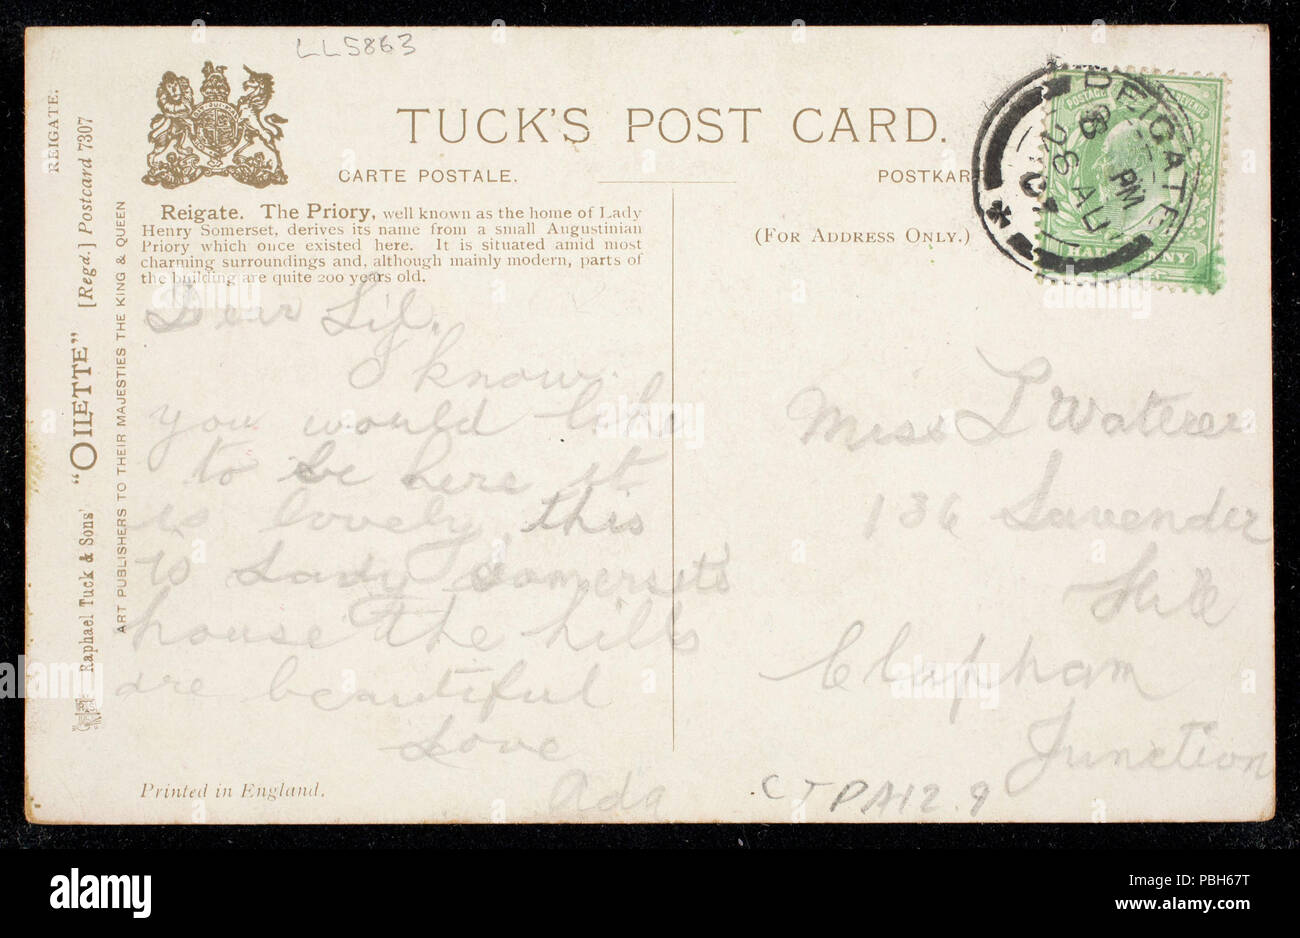 LL5863
TUCK'S POST CARD.
CARTE POSTALE.
POSTKAR
(FOR ADDRESS ONLY.)
Reigate. The Priory, well known as the home of Lady
Henry Somerset, derives its name from a small Augustinian
Priory which once existed here. It is situated amid most
charming surroundings and, although mainly modern, parts of
the building are quite 200 years old.
Dear Lil.
I know
you would like
to be here it
is lovely, this
is Lady Somersets
house the hills
are beautiful
Love
Ada
Printed in England.
REIGATE.
Raphael Tuck & Sons' "OILETTE" [Regd.] Postcard 7307
ART PUBLISHERS TO THEIR MAJESTIES THE KING & QUEEN
REIGATE
PM
26 AU
POSTAGE
REVENUE
HAL NNY
Miss L Waterer
136 Lavender
Hill
Clapham
Junction
CTPA12.9
alamy
Image ID: PBH67T
www.alamy.com